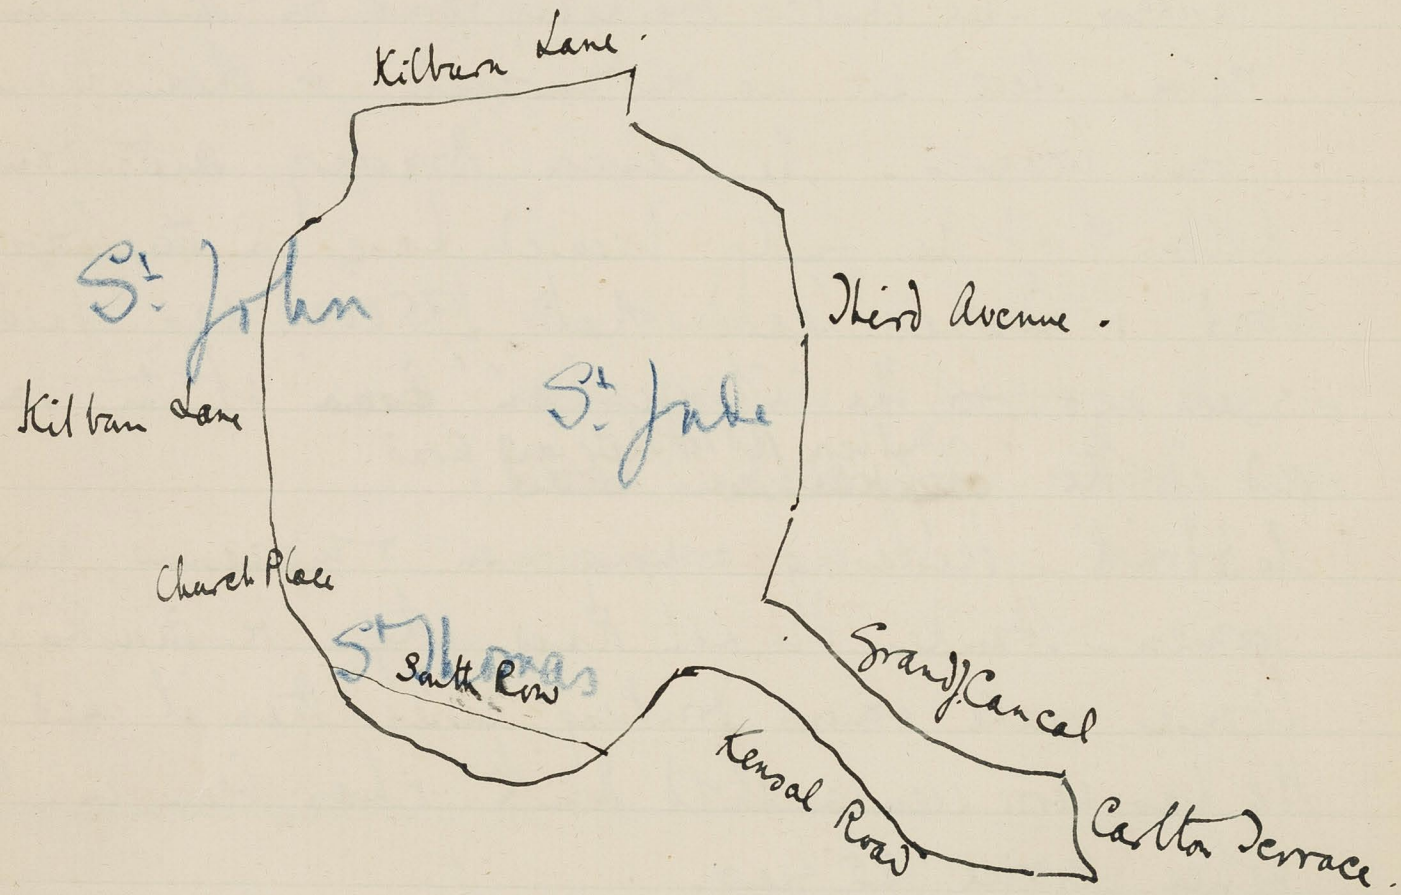 Kilburn Lane.
St. John
Third Avenue.
St. Jude
Kilburn Lane
Church Place
St Thomas
South Row
Grand J. Cancal
Kensal Road
Carlton Terrace.